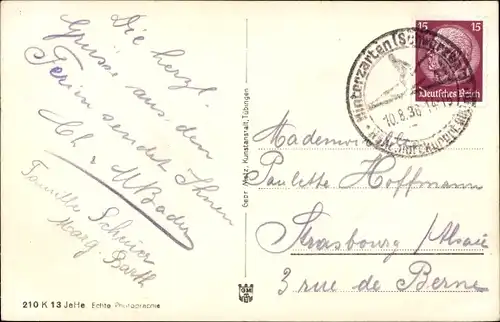 Die herzl.
Grüsse aus den
Ferien sendet Ihnen
Ch. u. M Bader
Familie Scheurer
Marg Barth
210 K 13 JeHe. Echte Photographie
Gebr. Metz, Kunstanstalt, Tübingen
Hinterzarten (Schwarzwald)
10.8.36
15 15
Deutsches Reich
Mademoiselle
Paulette Hoffmann
Strasbourg /Alsace
3 rue de Berne